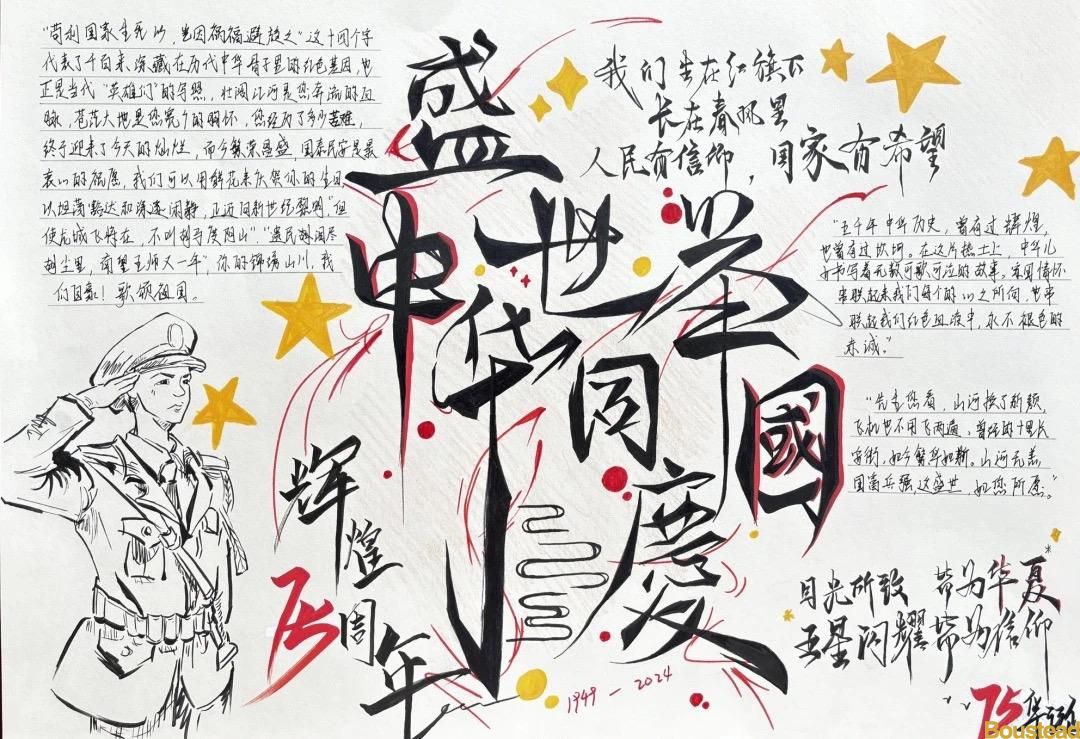 "苟利国家生死以，岂因祸福避趋之"这十四个字
代表了千百来深藏在历代中华骨子里的红色基因，也
正是当代"英雄们"的写照，壮阔山河是您奔流的血
脉，苍茫大地是您宽广的胸怀，您经历了多少苦难，
终于迎来了今天的灿烂，而今繁荣昌盛，国泰民安是最
衷心的祝愿，我们可以用鲜花来庆祝你的生日，
以坦荡豁达和深邃闲静，正迈向新世纪黎明，"但
使龙城飞将在，不叫胡马度阴山"，"遗民泪尽
胡尘里，南望王师又一年"，你的锦绣山川，我
们自豪！歌颂祖国。
盛世中华
举国同慶
辉煌
75周年
1949-2024
我们生在红旗下
长在春风里
人民有信仰，国家有希望
"五千年中华历史，曾有过辉煌，
也曾有过坎坷，在这片热土上，中华儿
女书写着无数可歌可泣的故事，爱国情怀
串联起来我们每个的心之所向，也串
联起我们红色血液中，永不褪色的
赤诚。"
"先生您看，山河换了新颜，
飞机也不用飞两遍，曾经的十里长
安街，如今繁华如斯。山河无恙，
国富兵强，这盛世，如您所愿。"
目光所致 皆为华夏
五星闪耀皆为信仰
75华诞
Boustead